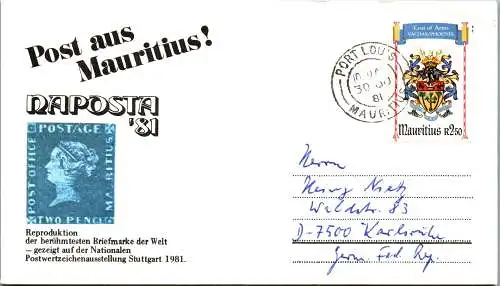 Post aus
Mauritius!
NAPOSTA
'81
POSTAGE
POST OFFICE
MAURITIUS
TWO PENCE
Reproduktion
der berühmtesten Briefmarke der Welt
– gezeigt auf der Nationalen
Postwertzeichenausstellung Stuttgart 1981.
PORT LOUIS
30
81
MAURITIUS
Coat of Arms
VACOAS/PHOENIX
Mauritius R2.50
Herrn
Waldstr. 83
D-7500 Karlsruhe
Germ. Fed. Rep.